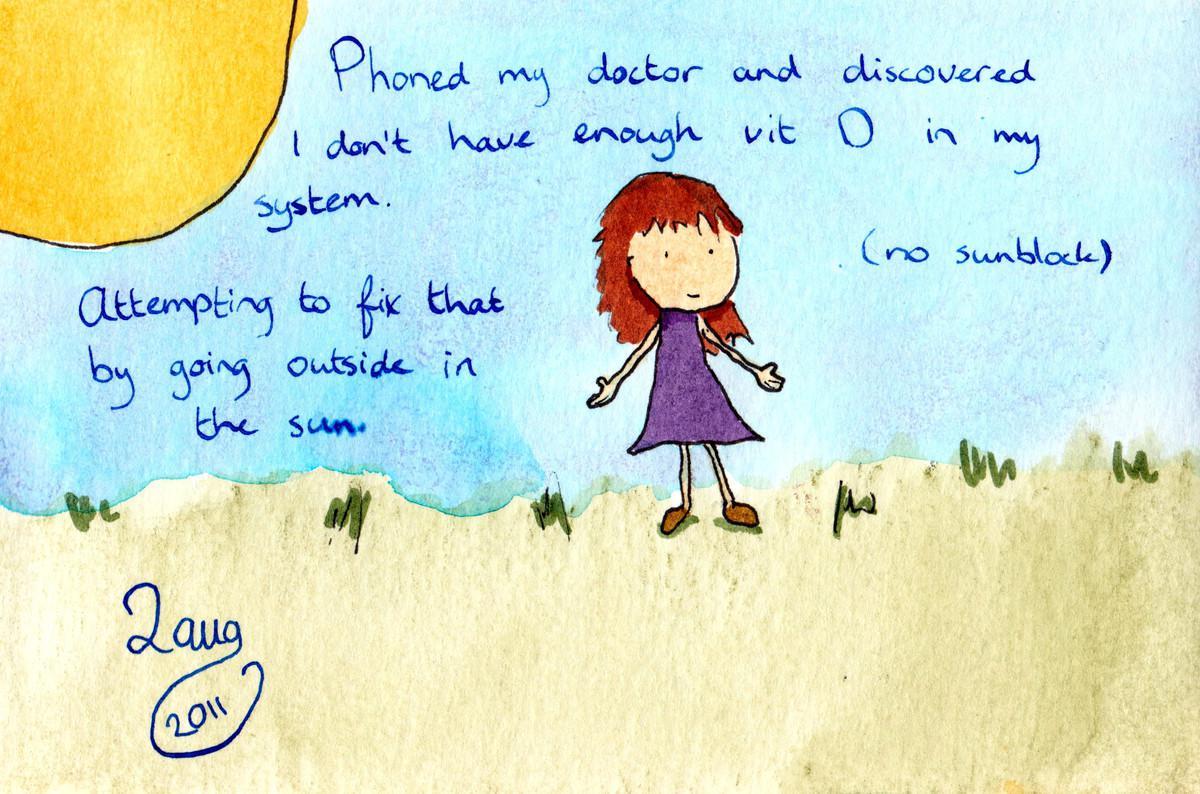 Phoned my doctor and discovered
I don't have enough vit D in my
system.
(no sunblock)
Attempting to fix that
by going outside in
the sun.
2 aug
2011